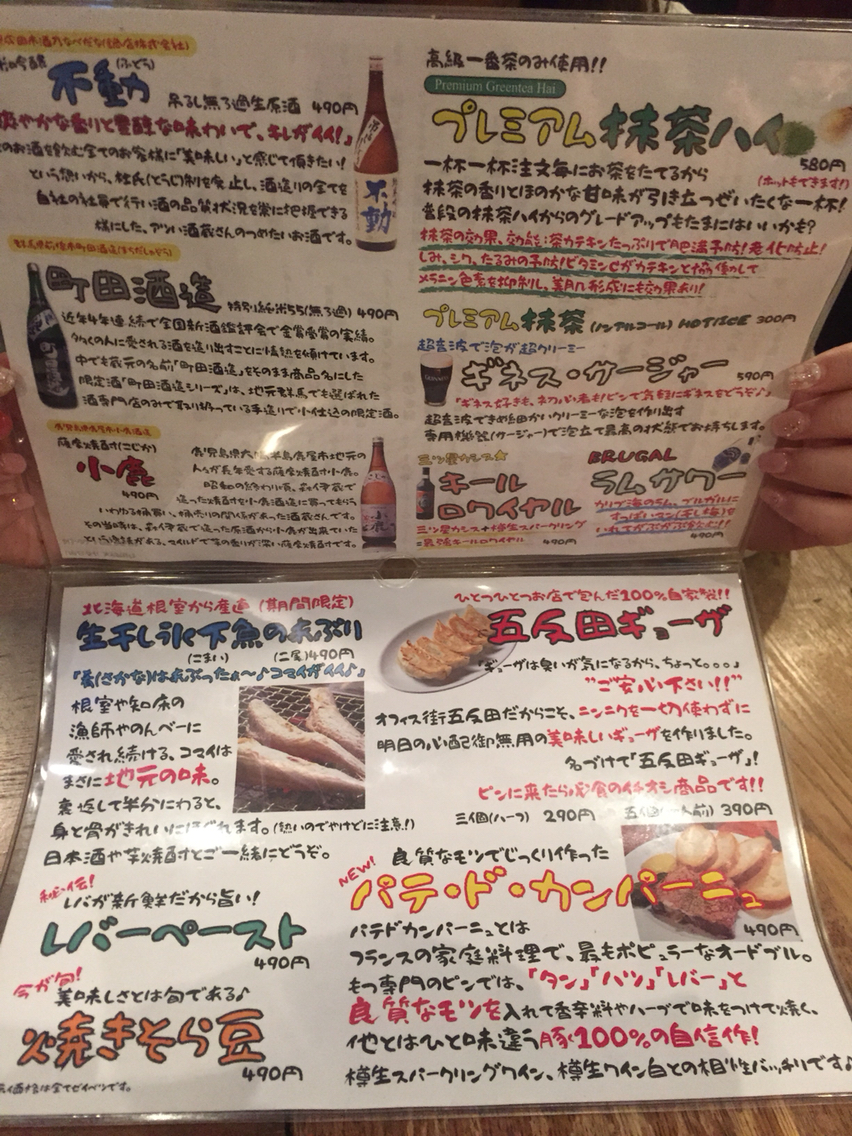 不動
(ふどう)
吊るし無ろ過生原酒 490円
爽やかな香りと豊醇な味わいで、キレがイイ!」
のお酒を飲む全てのお客様に「美味しい」と感じて頂きたい!
という想いから、杜氏(とうじ)制を廃止し、酒造りの全てを
自社の社員で行い酒の品質状況を常に把握できる
様にした、アツい酒蔵さんのつめたいお酒です。
町田酒造
特別純米55(無ろ過) 490円
近年4年連続で全国新酒鑑評会で金賞受賞の実績。
多くの人に愛される酒を造り出すことに情熱を傾けています。
中でも蔵元の名前「町田酒造」をそのまま商品名にした
限定酒「町田酒造シリーズ」は、地元群馬でも選ばれた
酒専門店のみで取り扱っている手造りで小仕込の限定酒。
薩摩焼酎(こじか)
小鹿
490円
人々が長年愛する薩摩焼酎小鹿。
造った焼酎を小鹿酒造に買ってもらう
いわゆる桶買い、桶売りの関係があった酒蔵さんです。
という逸話がある、マイルドで芋の香りが深い薩摩焼酎です。
高級一番茶のみ使用!!
Premium Greentea Hai
プレミアム抹茶ハイ
580円
(ホットもできます!)
一杯一杯注文毎にお茶をたてるから
抹茶の香りとほのかな甘味が引き立つぜいたくな一杯!
普段の抹茶ハイからのグレードアップもたまにはいいかも?
抹茶の効果、効能:茶カテキンたっぷりで肥満予防!老化防止!
しみ、シワ、たるみの予防!ビタミンCがカテキンと協働して
メラニン色素を抑制し、美肌形成にも効果あり!
プレミアム抹茶 (ノンアルコール) HOT/ICE 300円
超音波で泡が超クリーミー
ギネス・サージャー
590円
「ギネス好きも、ネガ心者もピンで気軽にギネスをどうぞ♪」
超音波できめ細かいクリーミーな泡を作り出す
専用機器(サージャー)で泡立て最高の状態でお持ちします。
三ツ星カシス★
キール
ロワイヤル
三ツ星カシス+樽生スパークリング
最強キールロワイヤル 490円
BRUGAL
ラムサワー
カリブ海のラム、ブルガルに
すっぱいマン(干し梅)を
490円
北海道根室から産直(期間限定)
生干し氷下魚の炙ぶり
(こまい) (二尾)490円
「肴(さかな)は炙ぶったぁ〜♪コマイがイイ♪」
根室や知床の
漁師やのんべーに
愛され続ける、コマイは
まさに地元の味。
裏返して半分にわると、
身と骨がきれいにほぐれます。(熱いのでやけどに注意!)
日本酒や芋焼酎とご一緒にどうぞ。
秘伝!
レバが新鮮だから旨い!
レバーペースト
490円
今が旬!
美味しさとは旬である♪
焼きそら豆
490円
ひとつひとつお店で包んだ100%自家製!!
五反田ギョーザ
「ギョーザは臭いが気になるから、ちょっと。。。」
"ご安心下さい!!"
オフィス街五反田だからこそ、ニンニクを一切使わずに
明日の心配御無用の美味しいギョーザを作りました。
名づけて「五反田ギョーザ」!
ピンに来たら必食のイチオシ商品です!!
三個(ハーフ) 290円 五個(一人前) 390円
NEW!
良質なモツでじっくり作った
パテ・ド・カンパーニュ
490円
パテドカンパーニュとは
フランスの家庭料理で、最もポピュラーなオードブル。
もつ専門のピンでは、「タン」「ハツ」「レバー」と
良質なモツを入れて香辛料やハーブで味をつけて焼く、
他とはひと味違う豚100%の自信作!
樽生スパークリングワイン、樽生ワイン白との相性バッチリです♪